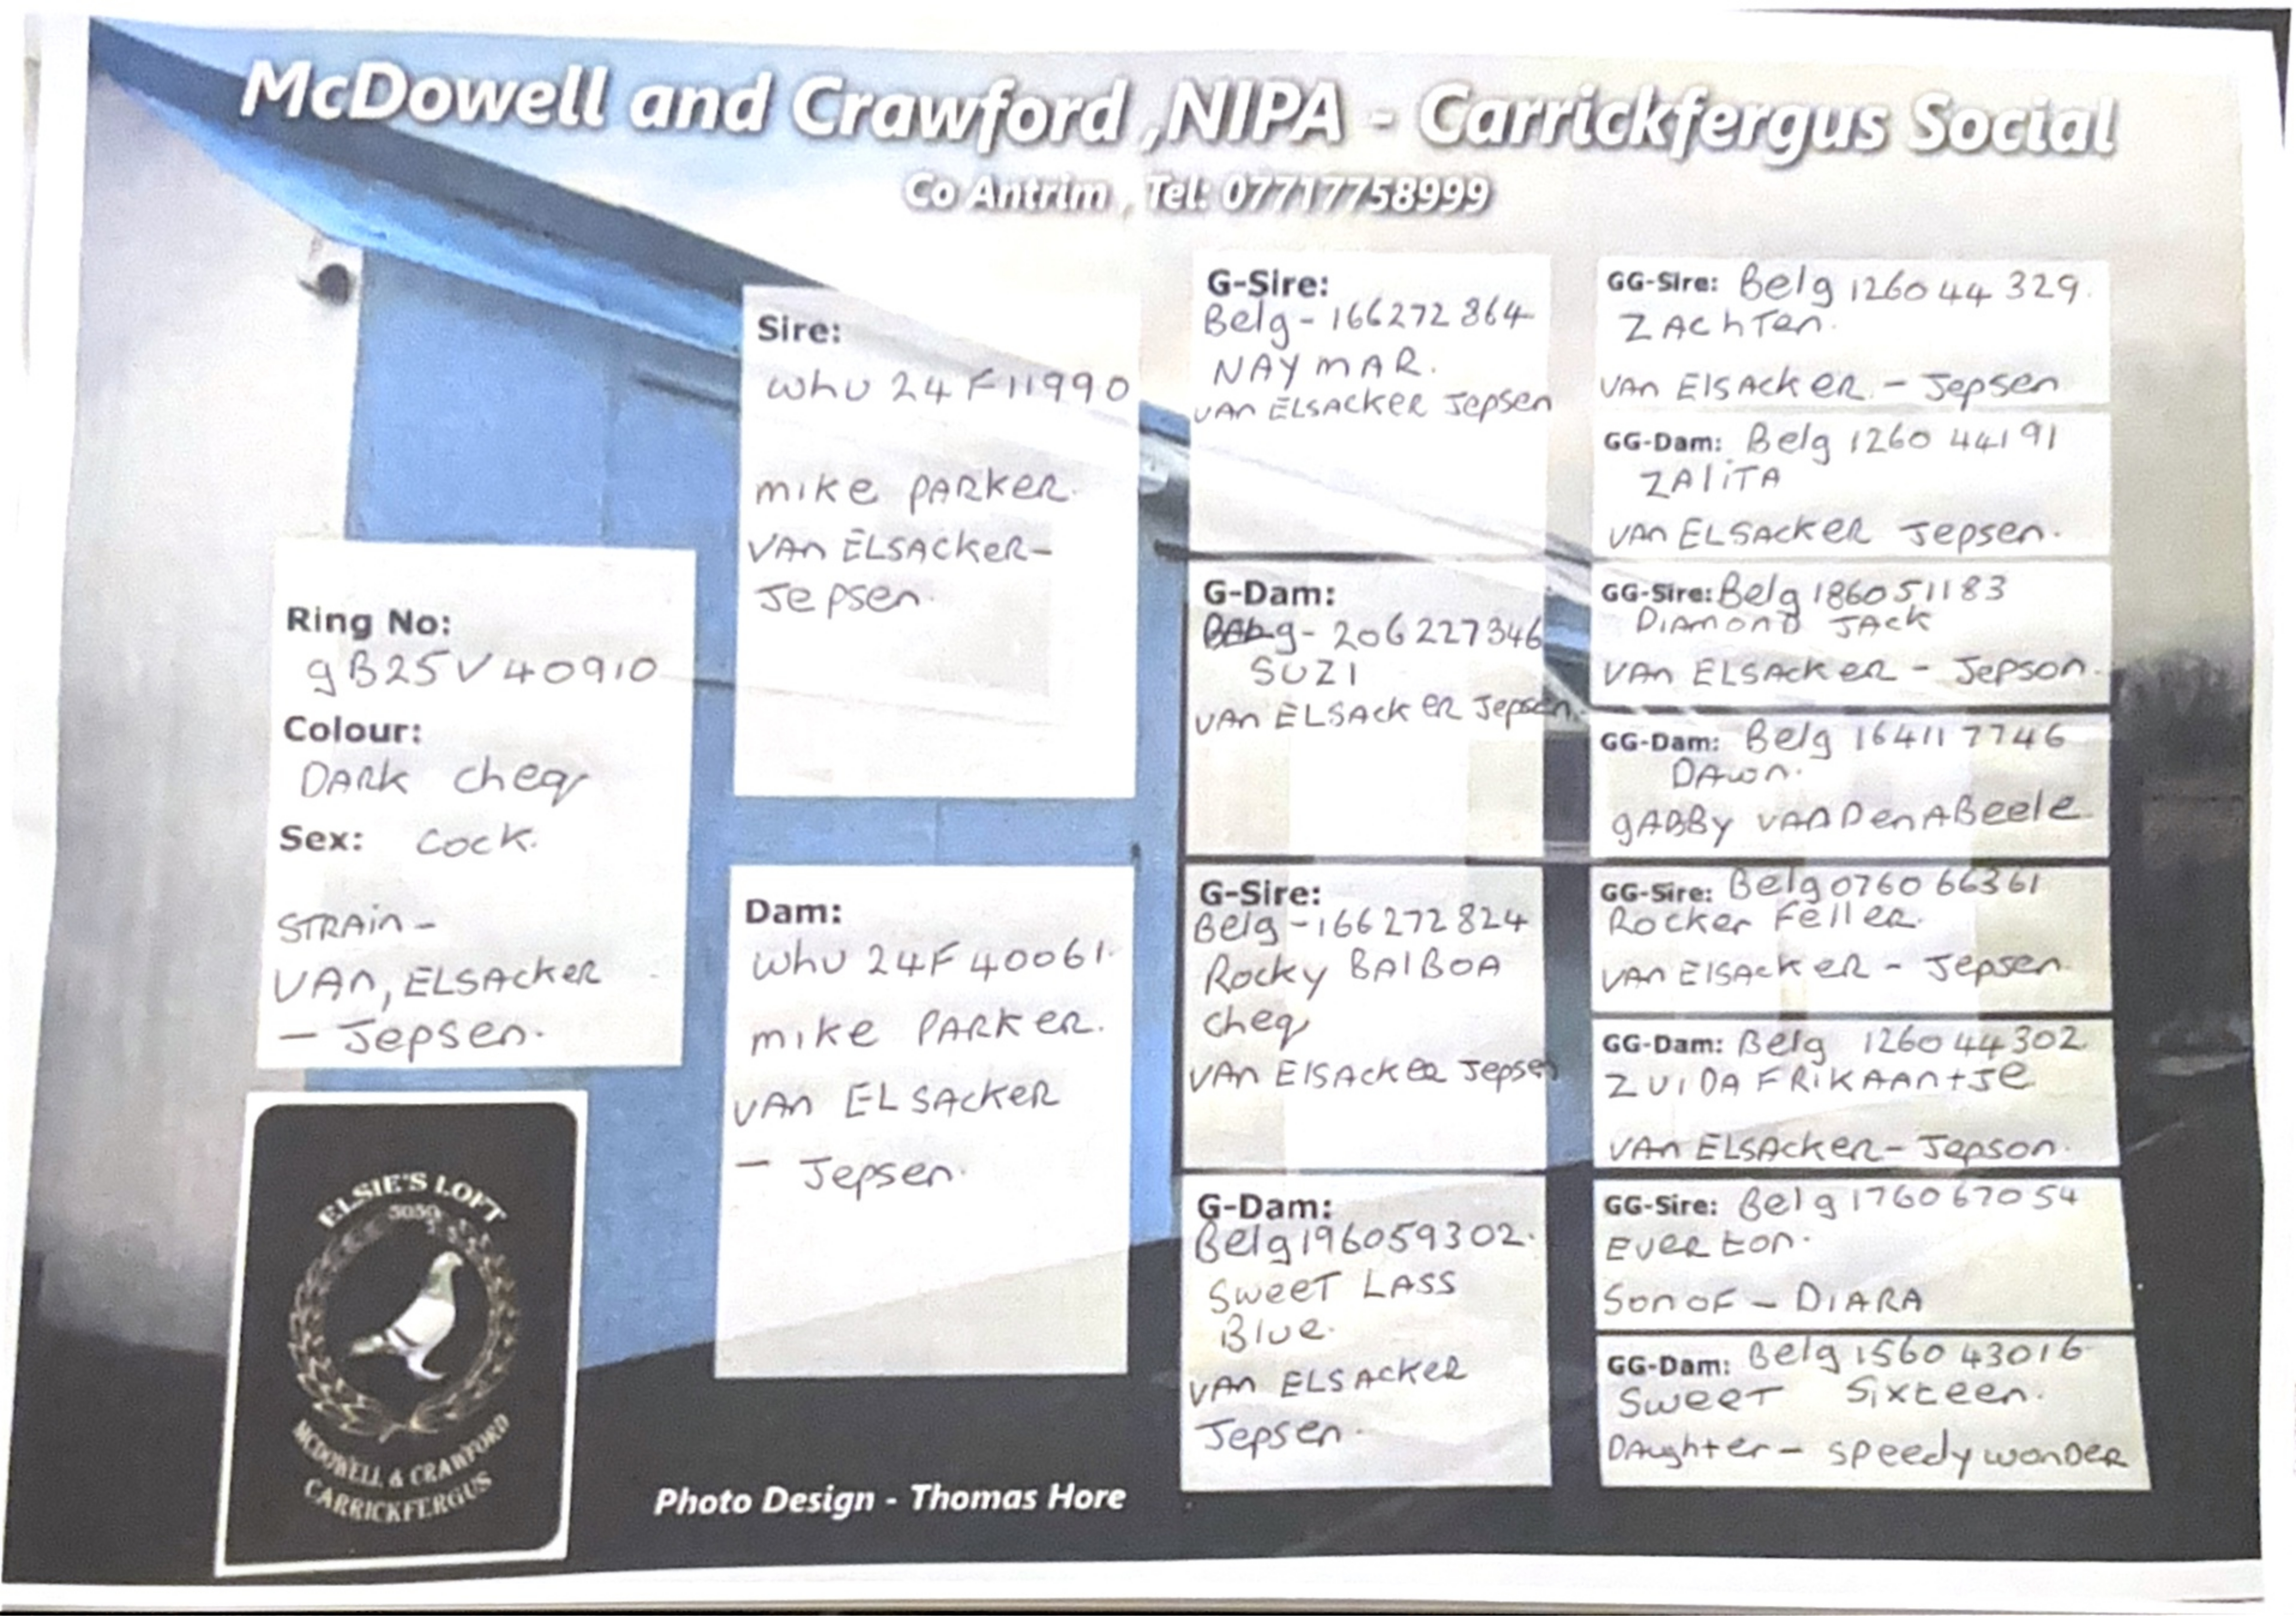 McDowell and Crawford ,NIPA - Carrickfergus Social
Co Antrim , Tel: 07717758999
Ring No:
gB25V40910
Colour:
DARK cheq
Sex: cock.
STRAin -
VAn, ELSAckeR
- Jepsen.
ELSIE'S LOFT
MCDOWELL & CRAWFORD
CARRICKFERGUS
Sire:
whu 24 F11990
mike PARKER.
VAn ELSACKeR-
Jepsen.
Dam:
whu 24F40061.
mike PARKER.
VAn ELSAckeR
- Jepsen.
Photo Design - Thomas Hore
G-Sire:
Belg - 166272864
NAYmAR.
VAn ELSACKeR Jepsen
G-Dam:
g - 206227346
SUZI
VAn ELSACKeR Jepsen.
G-Sire:
Belg - 166272824
Rocky BAlBOA
cheq
VAn ElSAckeR Jepsen
G-Dam:
Belg196059302.
SweeT LASS
Blue.
VAn ELSAckeR
Jepsen.
GG-Sire: Belg 126044329.
ZAchTen.
VAn ElSAckeR. - Jepsen
GG-Dam: Belg 126044191
ZAliTA
VAn ELSAckeR Jepsen.
GG-Sire: Belg 186051183
DiAmonD JAck
VAn ELSAckeR - Jepson.
GG-Dam: Belg 164117746
DAwn.
gABBy VAnDenABeele
GG-Sire: Belg076066361
Rocker Feller.
VAn ElSAckeR - Jepsen
GG-Dam: Belg 126044302
ZUIDAFRiKAAntJe
VAn ELSAckeR - Jepson.
GG-Sire: Belg 176067054
EveRton.
Son oF - DIARA
GG-Dam: Belg 156043016
SweeT Sixteen.
DAughter - speedy wonDeR